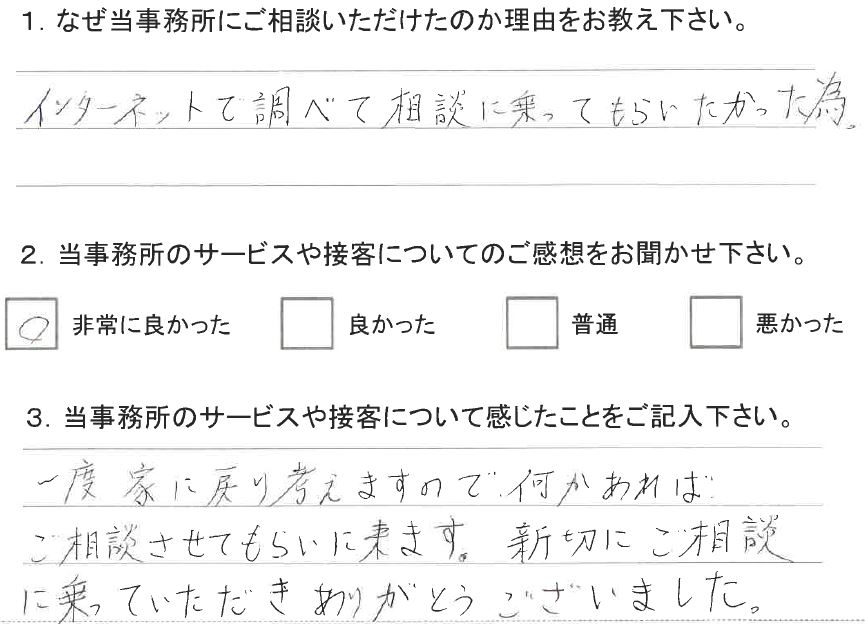 1. なぜ当事務所にご相談いただけたのか理由をお教え下さい。
インターネットで調べて相談に乗ってもらいたかった為。
2. 当事務所のサービスや接客についてのご感想をお聞かせ下さい。
非常に良かった 良かった 普通 悪かった
3. 当事務所のサービスや接客について感じたことをご記入下さい。
一度家に戻り考えますので何かあれば
ご相談させてもらいに来ます。新切にご相談
に乗っていただきありがとうございました。